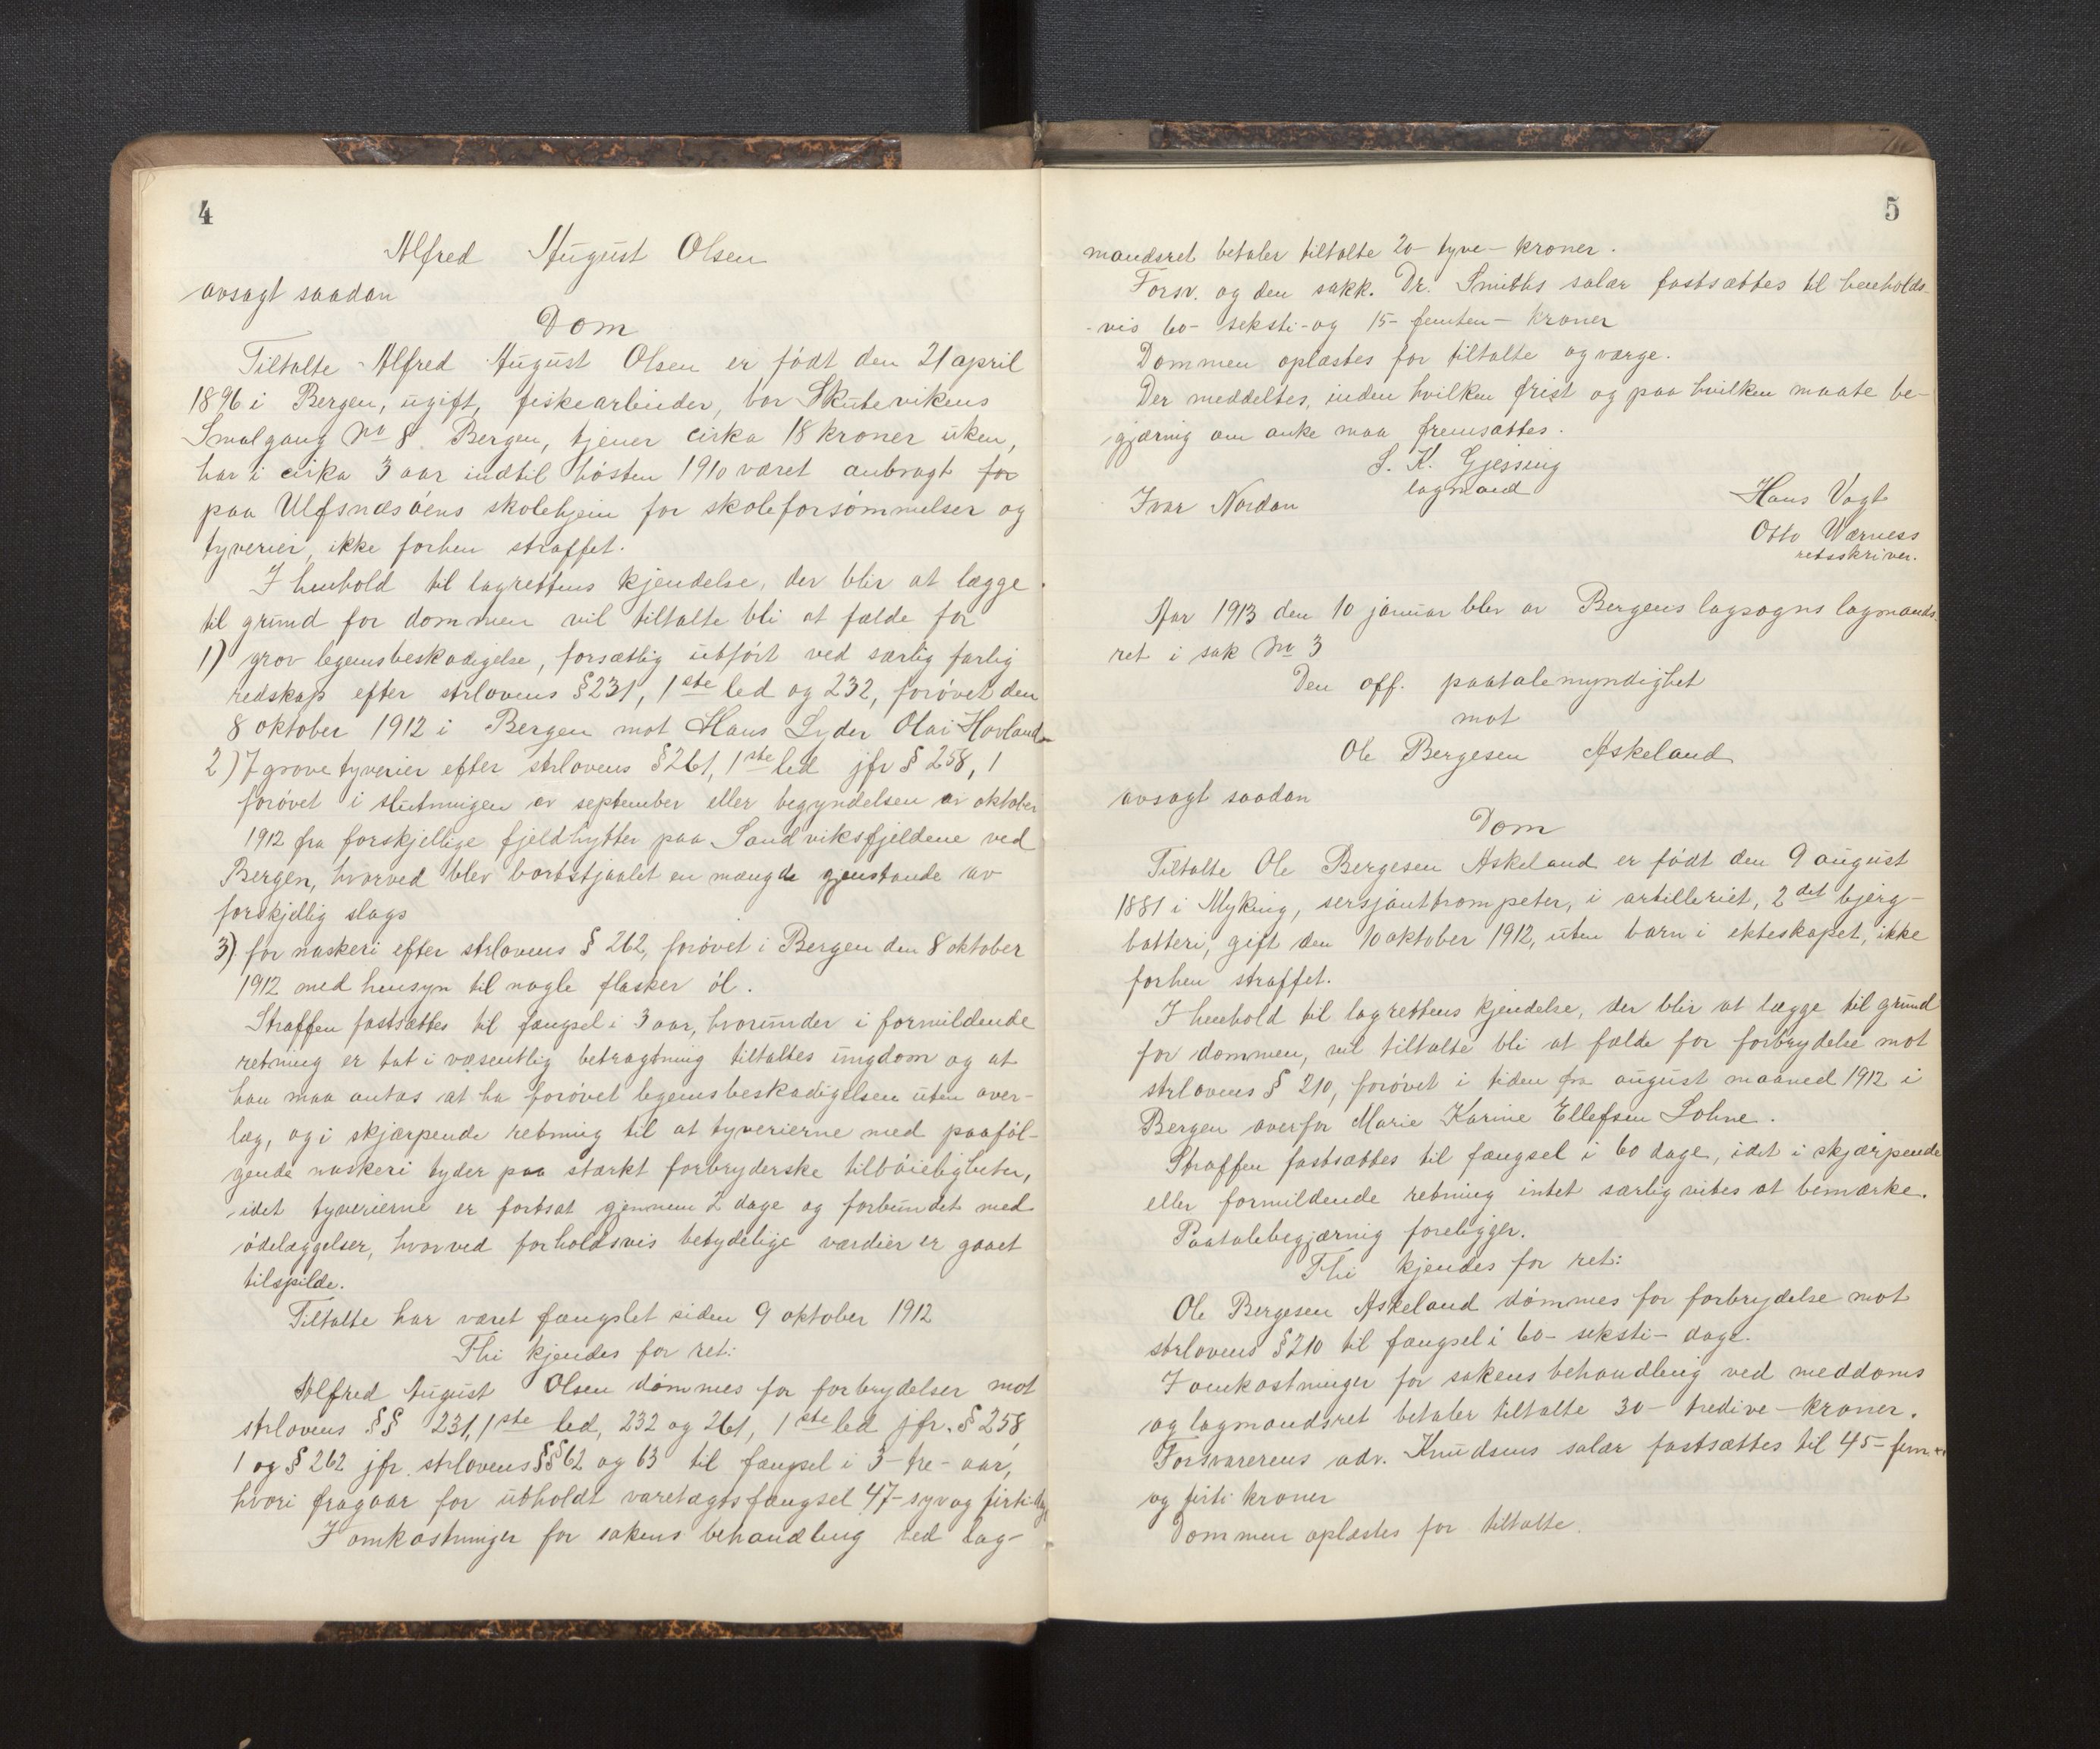 4
Alfred August Olsen
avsagt saadan
Dom
Tiltalte Alfred August Olsen er født den 21 april
1896 i Bergen, ugift, fiskearbeider, bor Skutevikens
Smalgang No 8 Bergen, tjener cirka 18 kroner uken,
har i cirka 3 aar indtil høsten 1910 været anbragt for
paa Ulfsnæsøens skolehjem for skoleforsømmelser og
tyverier, ikke forhen straffet.
I henhold til lagrettens kjendelse, der blir at lægge
til grund for dommen vil tiltalte bli at fælde for
1) grov legemsbeskadigelse, forsætlig utført ved særlig farlig
redskap efter strlovens § 231, 1ste led og 232, forøvet den
8 oktober 1912 i Bergen mot Hans Lyder Olai Hovland
2) 7 grove tyverier efter strlovens § 261, 1ste led jfr § 258, 1
forøvet i slutningen av september eller begyndelsen av oktober
1912 fra forskjellige fjeldhytter paa Sandviksfjeldene ved
Bergen, hvorved blev bortstjaalet en mængde gjenstande av
forskjellig slags
3) for naskeri efter strlovens § 262, forøvet i Bergen den 8 oktober
1912 med hensyn til nogle flasker øl.
Straffen fastsættes til fængsel i 3 aar, hvorunder i formildende
retning er tat i væsentlig betragtning tiltaltes ungdom og at
han maa antas at ha forøvet legemsbeskadigelsen uten over-
læg, og i skjærpende retning til at tyverierne med paaføl-
gende naskeri tyder paa stærkt forbryderske tilbøieligheter,
idet tyverierne er fortsat gjennem 2 dage og forbundet med
ødelæggelser, hvorved forholdsvis betydelige værdier er gaaet
tilspilde.
Tiltalte har været fængslet siden 9 oktober 1912
Thi kjendes for ret:
Alfred August Olsen dømmes for forbrydelser mot
strlovens §§ 231, 1ste led, 232 og 261, 1ste led jfr. § 258,
1 og § 262 jfr. strlovens §§ 62 og 63 til fængsel i 3 - tre - aar,
hvori fragaar for utholdt varetægtsfængsel 47 - syv og firti - dage
I omkostninger for sakens behandling ved lag-
5
mandsret betaler tiltalte 20 - tyve - kroner.
Forsv. og den sakk. Dr. Smiths salær fastsættes til henholds-
-vis 60 - seksti - og 15 - femten - kroner
Dommen oplæstes for tiltalte og værge.
Der meddeltes, inden hvilken frist og paa hvilken maate be-
gjæring om anke maa fremsættes.
S. K. Gjessing
lagmand
Ivar Nordan
Hans Vagt
Otto Wærness
retsskriver.
Aar 1913 den 10 januar blev av Bergens lagsogns lagmands
ret i sak No 3
Den off. paatalemyndighet
mot
Ole Bergesen Askeland
avsagt saadan
Dom
Tiltalte Ole Bergesen Askeland er født den 9 august
1881 i Myking, sersjanttrompeter, i artilleriet, 2det bjerg-
batteri, gift den 10 oktober 1912, uten barn i ekteskapet, ikke
forhen straffet.
I henhold til lagrettens kjendelse, der blir at lægge til grund
for dommen, vil tiltalte bli at fælde for forbrydelse mot
strlovens § 210, forøvet i tiden fra august maaned 1912 i
Bergen overfor Marie Karine Ellefsen Lohne.
Straffen fastsættes til fængsel i 60 dage, idet i skjærpende
eller formildende retning intet særlig vites at bemærke.
Paatalebegjæring foreligger.
Thi kjendes for ret:
Ole Bergesen Askeland dømmes for forbrydelse mot
strlovens § 210 til fængsel i 60 - seksti - dage.
I omkostninger for sakens behandling ved meddoms
og lagmandsret betaler tiltalte 30 - tredive - kroner.
Forsvarerens adv. Knudsens salær fastsættes til 45 - fem
og firti kroner
Dommen oplæstes for tiltalte.